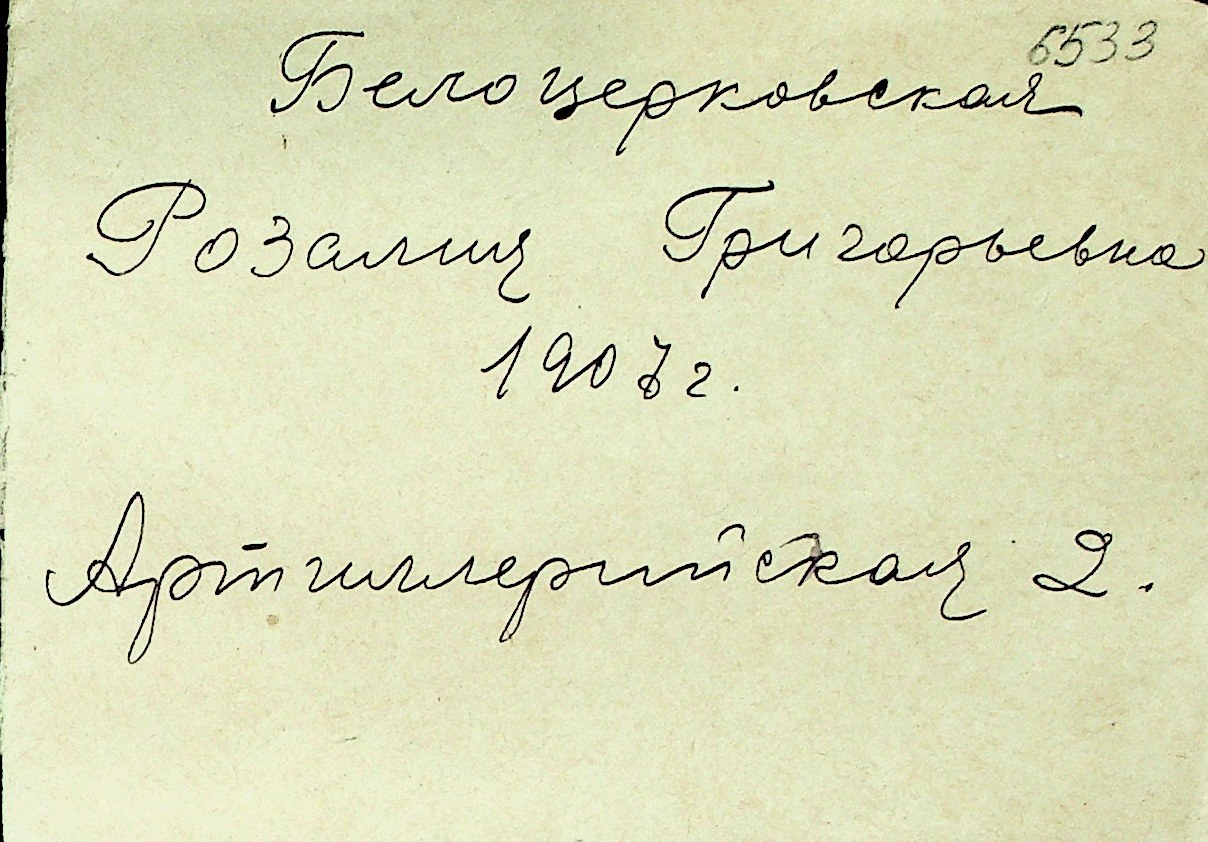 6533
Белоцерковская
Розалия Григорьевна
1907 г.
Артиллерийская 2.